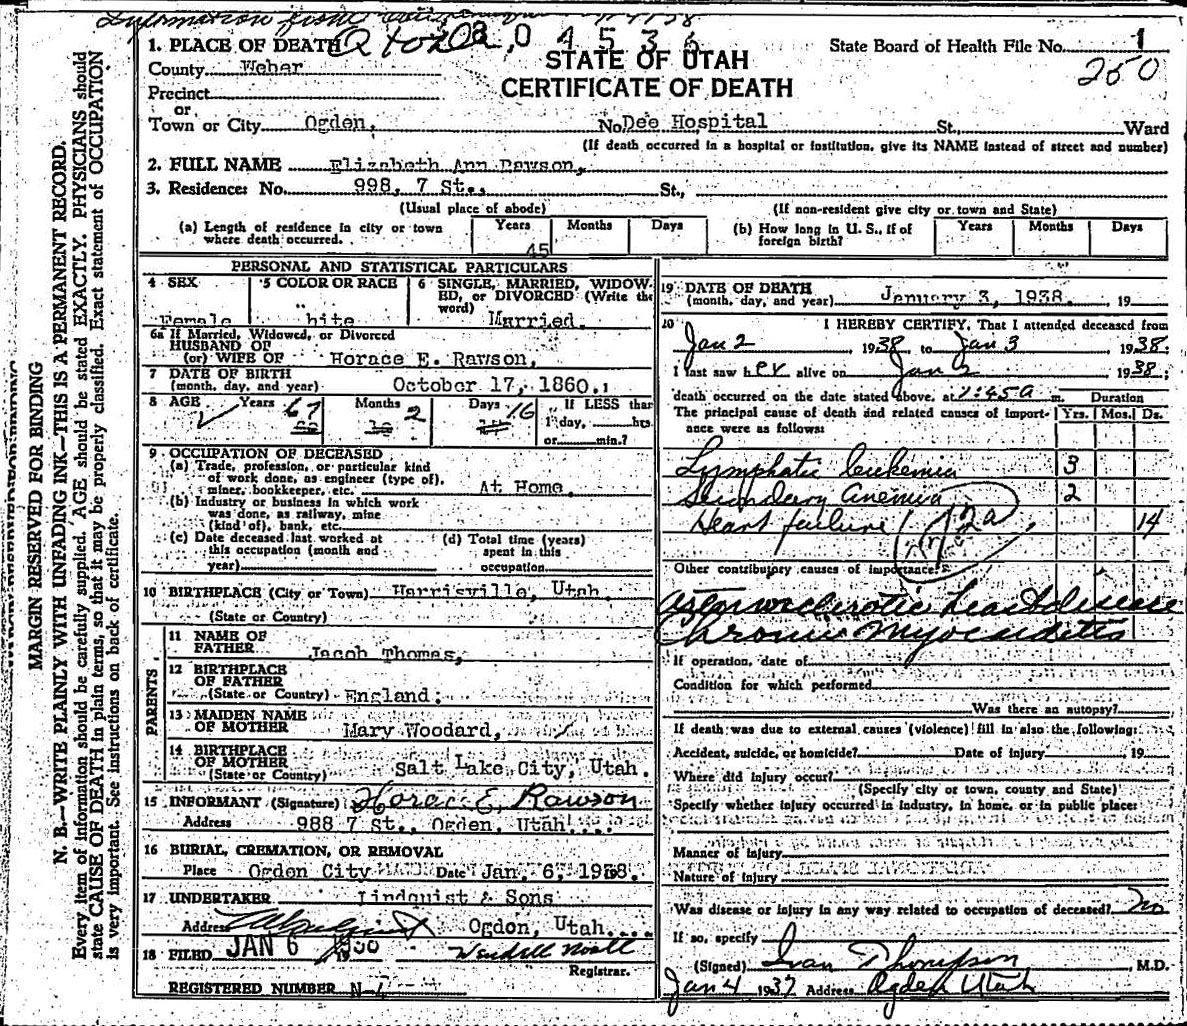 Information from
1. PLACE OF DEATH
State Board of Health File No. 1
STATE OF UTAH
250
County Weber
CERTIFICATE OF DEATH
Precinct
or
Town or City Ogden, No Dee Hospital St., Ward
(If death occurred in a hospital or institution, give its NAME instead of street and number)
2. FULL NAME Elizabeth Ann Rawson,
3. Residence: No. 998, 7 St., St.,
(Usual place of abode) (If non-resident give city or town and State)
(a) Length of residence in city or town where death occurred. Years 45 Months Days
(b) How long in U. S., if of foreign birth? Years Months Days
PERSONAL AND STATISTICAL PARTICULARS
4 SEX Female
5 COLOR OR RACE hite
6 SINGLE, MARRIED, WIDOW-
ED, or DIVORCED (Write the
word) Married.
6a If Married, Widowed, or Divorced
HUSBAND OF
(or) WIFE OF Horace E. Rawson,
7 DATE OF BIRTH
(month, day, and year) October 17, 1860.
8 AGE Years 67 Months 2 Days 16 If LESS than
1 day, hrs.
or min.?
9 OCCUPATION OF DECEASED
(a) Trade, profession, or particular kind
of work done, as engineer (type of),
miner, bookkeeper, etc. At Home.
(b) Industry or business in which work
was done, as railway, mine
(kind of), bank, etc.
(c) Date deceased last worked at
this occupation (month and
year)
(d) Total time (years)
spent in this
occupation
10 BIRTHPLACE (City or Town) Harrisville, Utah.
(State or Country)
PARENTS
11 NAME OF
FATHER Jacob Thomas,
12 BIRTHPLACE
OF FATHER
(State or Country) England.
13 MAIDEN NAME
OF MOTHER Mary Woodard,
14 BIRTHPLACE
OF MOTHER
(State or Country) Salt Lake City, Utah.
15 INFORMANT (Signature) Horace E. Rawson
Address 988 7 St., Ogden, Utah....
16 BURIAL, CREMATION, OR REMOVAL
Place Ogden City Date Jan. 6, 1938.
17 UNDERTAKER Lindquist & Sons
Address Ogdon, Utah....
18 FILED JAN 6 19
Wendell Noall
Registrar.
REGISTERED NUMBER N-4
19 DATE OF DEATH
(month, day, and year) January 3, 1938. , 19
20 I HEREBY CERTIFY, That I attended deceased from
Jan 2, 1938, to Jan 3, 1938.
I last saw her alive on Jan 2, 1938;
death occurred on the date stated above, at 1:45 a m. Duration
The principal cause of death and related causes of import- Yrs. Mos. Ds.
ance were as follows:
Lymphatic leukemia 3
Secondary anemia 2
Heart failure 14
72a
Other contributory causes of importance:
Arteriosclerotic heart disease
Chronic Myocarditis
If operation, date of
Condition for which performed
Was there an autopsy?
If death was due to external causes (violence) fill in also the following:
Accident, suicide, or homicide? Date of injury , 19
Where did injury occur?
(Specify city or town, county and State)
Specify whether injury occurred in industry, in home, or in public place:
Manner of injury
Nature of injury
Was disease or injury in any way related to occupation of deceased? No
If so, specify
(Signed) Ivan Thompson , M.D.
Jan 4 1937 Address Ogden Utah
MARGIN RESERVED FOR BINDING
N. B.—WRITE PLAINLY WITH UNFADING INK—THIS IS A PERMANENT RECORD.
Every item of information should be carefully supplied. AGE should be stated EXACTLY. PHYSICIANS should
state CAUSE OF DEATH in plain terms, so that it may be properly classified. Exact statement of OCCUPATION
is very important. See instructions on back of certificate.